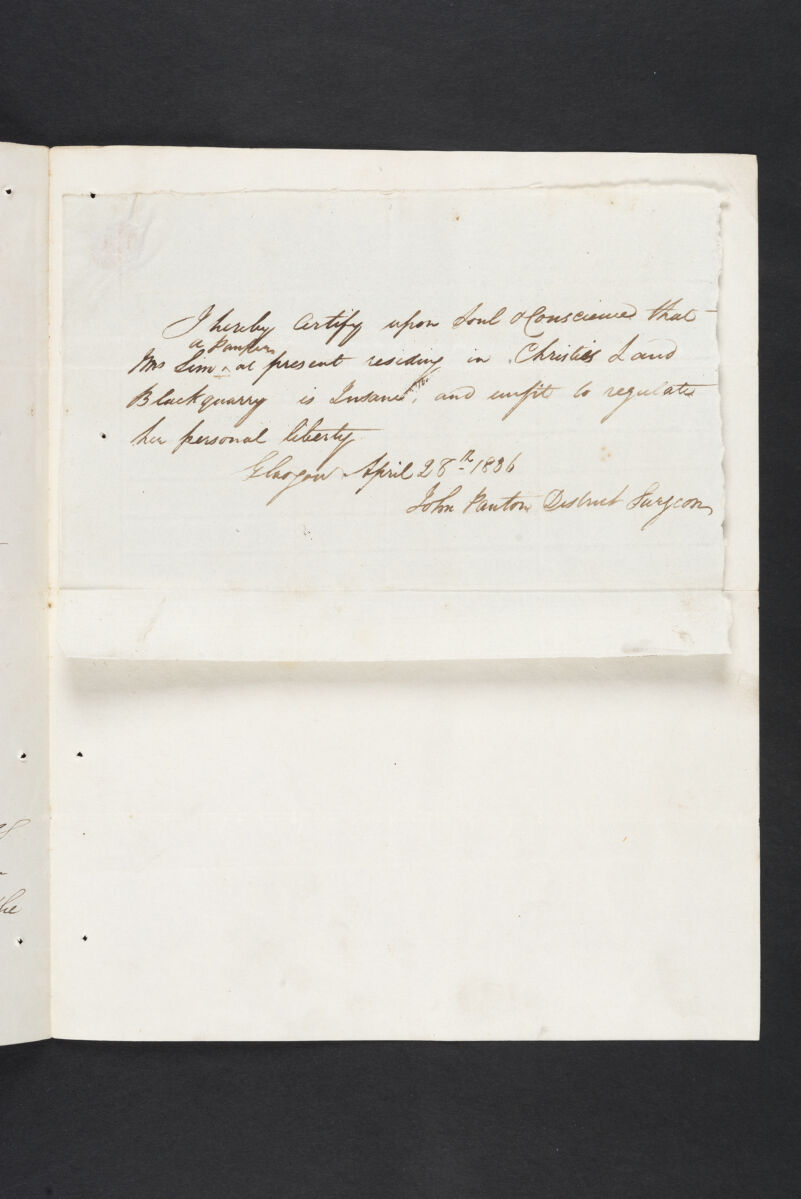 I hereby Certify upon Soul & Conscience that
a Pauper
Mrs Sim ^ at present residing in Christies Land
Blackquarry is Insane, and unfit to regulate
her personal liberty
Glasgow April 28th 1836
John Panton District Surgeon
the